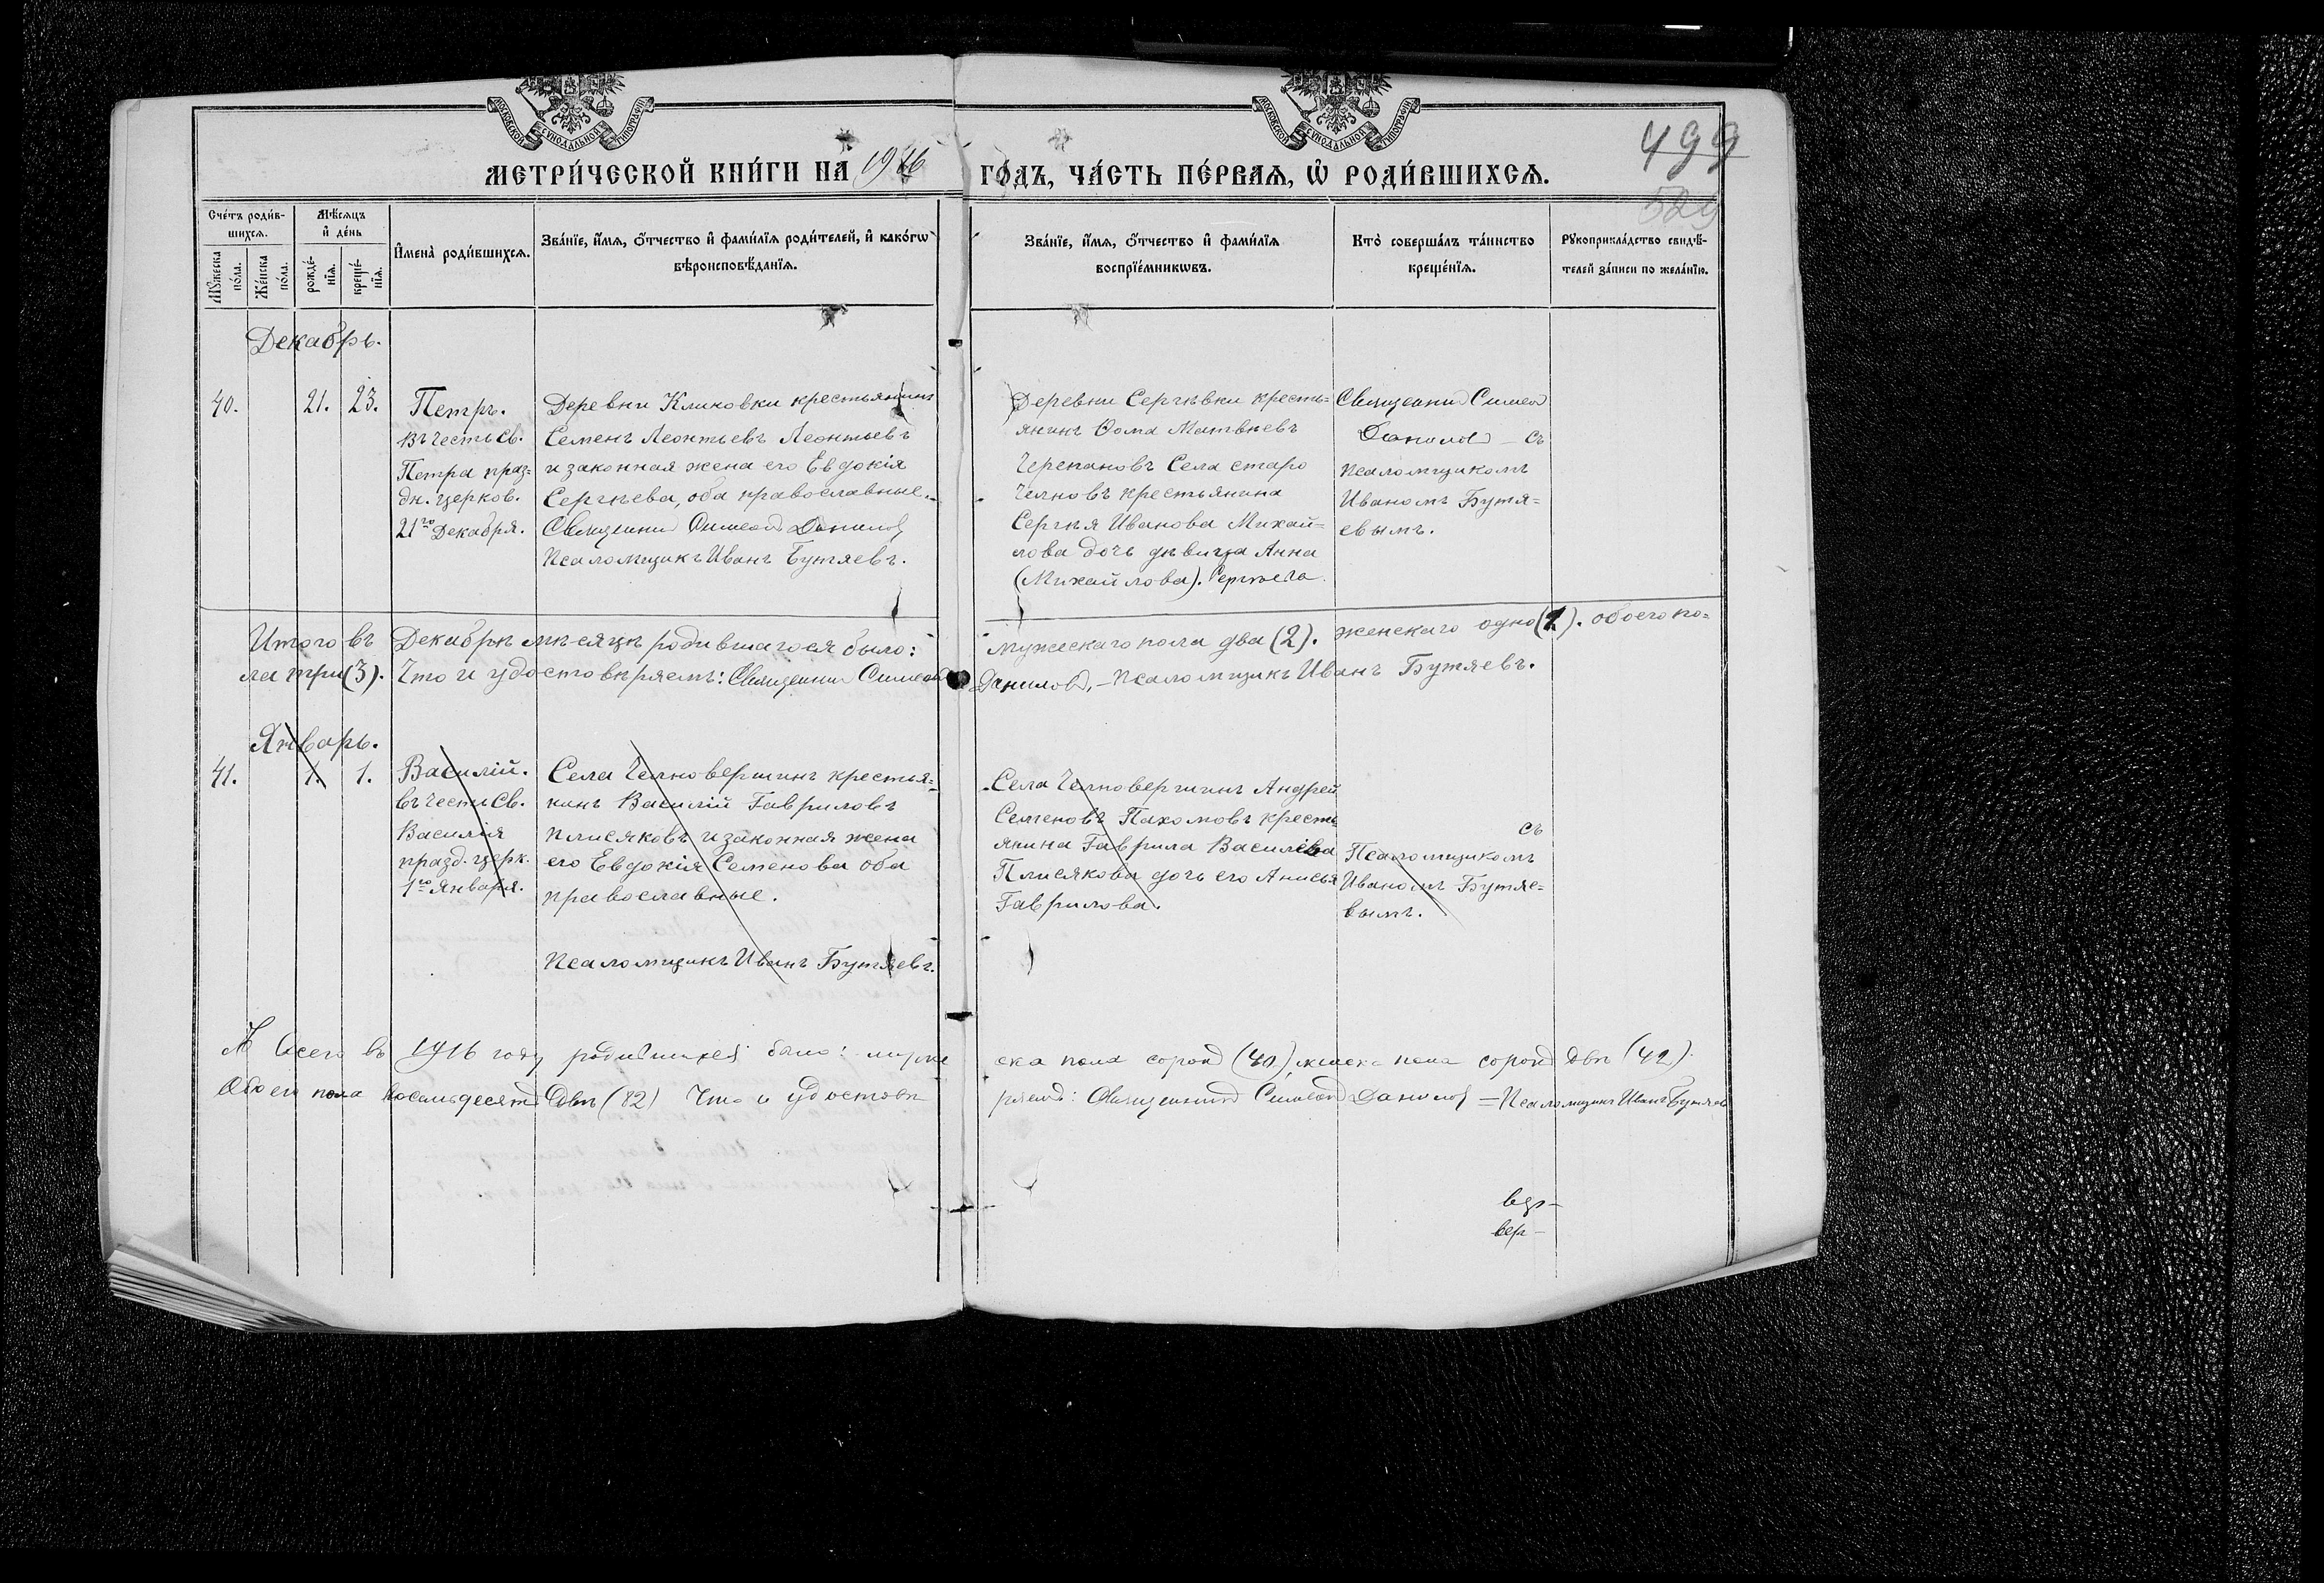 МОСКОВСКОЙ СУНОДАЛЬНОЙ ТИПОГРАФІИ
МОСКОВСКОЙ СУНОДАЛЬНОЙ ТИПОГРАФІИ
499
529
МЕТРИ́ЧЕСКОЙ КНИ́ГИ НА 1916 ГО́ДЪ, ЧА́СТЬ ПЕ́РВАѦ, Ѡ҆ РОДИ́ВШИХСѦ.
Сче́тъ роди́в-
шихсѧ.
Мѣ́сѧцъ
и҆ де́нь
Мꙋ́жеска
по́ла.
Же́нска
по́ла.
рожде́-
нїѧ.
креще́-
нїѧ.
И҆мена̀ роди́вшихсѧ.
Зва́нїе, и҆́мѧ, ѻ҆́тчество и҆ фами́лїѧ роди́телей, и҆ како́гѡ
вѣроисповѣ́данїѧ.
Зва́нїе, и҆́мѧ, ѻ҆́тчество и҆ фами́лїѧ
воспрїе́мникѡвъ.
Кто̀ соверша́лъ та́инство
креще́нїѧ.
Рꙋкоприкла́дство свидѣ́-
телей за́писи по жела́нїю.
Декабрь.
40.
21.
23.
Петръ.
въ честь св.
Петра праз=
дн. церков.
21го Декабря.
Деревни Климовки крестьянинъ
Семенъ Леонтьевъ Леонтьевъ
и законная жена его Евдокія
Сергѣева, оба православные.
Священникъ Симеонъ Даниловъ
Псаломщикъ Иванъ Бутяевъ.
Деревни Сергѣвки кресть=
янинъ Ѳома Матвѣевъ
Черепановъ Села старо
Челновъ крестьянина
Сергѣя Иванова Михай=
лова дочь дѣвица Анна
(Михайлова). Сергѣева.
Священникъ Симеонъ
Даниловъ – съ
псаломщикомъ
Иваномъ Бутя=
евымъ.
Итого въ Декабрѣ мѣсяцѣ родившагося было: мужескаго пола два (2). женскаго одно (1). обоего по=
ла три (3). Что и удостовѣряемъ: Священникъ Симеонъ Даниловъ, – Псаломщикъ Иванъ Бутяевъ.
Январь.
41.
1.
1.
Василій.
въ честь св.
Василія
празд. церк.
1го Января.
Села Челновершинъ крестья=
нинъ Василій Гавриловъ
Плисяковъ и законная жена
его Евдокія Семенова оба
православные.
Псаломщикъ Иванъ Бутяевъ.
Села Челновершинъ Андрей
Семеновъ Пахомовъ кресть
янина Гаврила Василіева
Плисякова дочь его Анисья
Гаврилова.
съ
Псаломщикомъ
Иваномъ Бутяе=
вымъ.
А всего въ 1916 году родившихся было: муже ска пола сорокъ (40), женска пола сорокъ двѣ (42).
Обоего пола восемьдесятъ двѣ (82) Что и удостовѣ ряемъ: Священникъ Симеонъ Даниловъ = Псаломщикъ Иванъ Бутяевъ